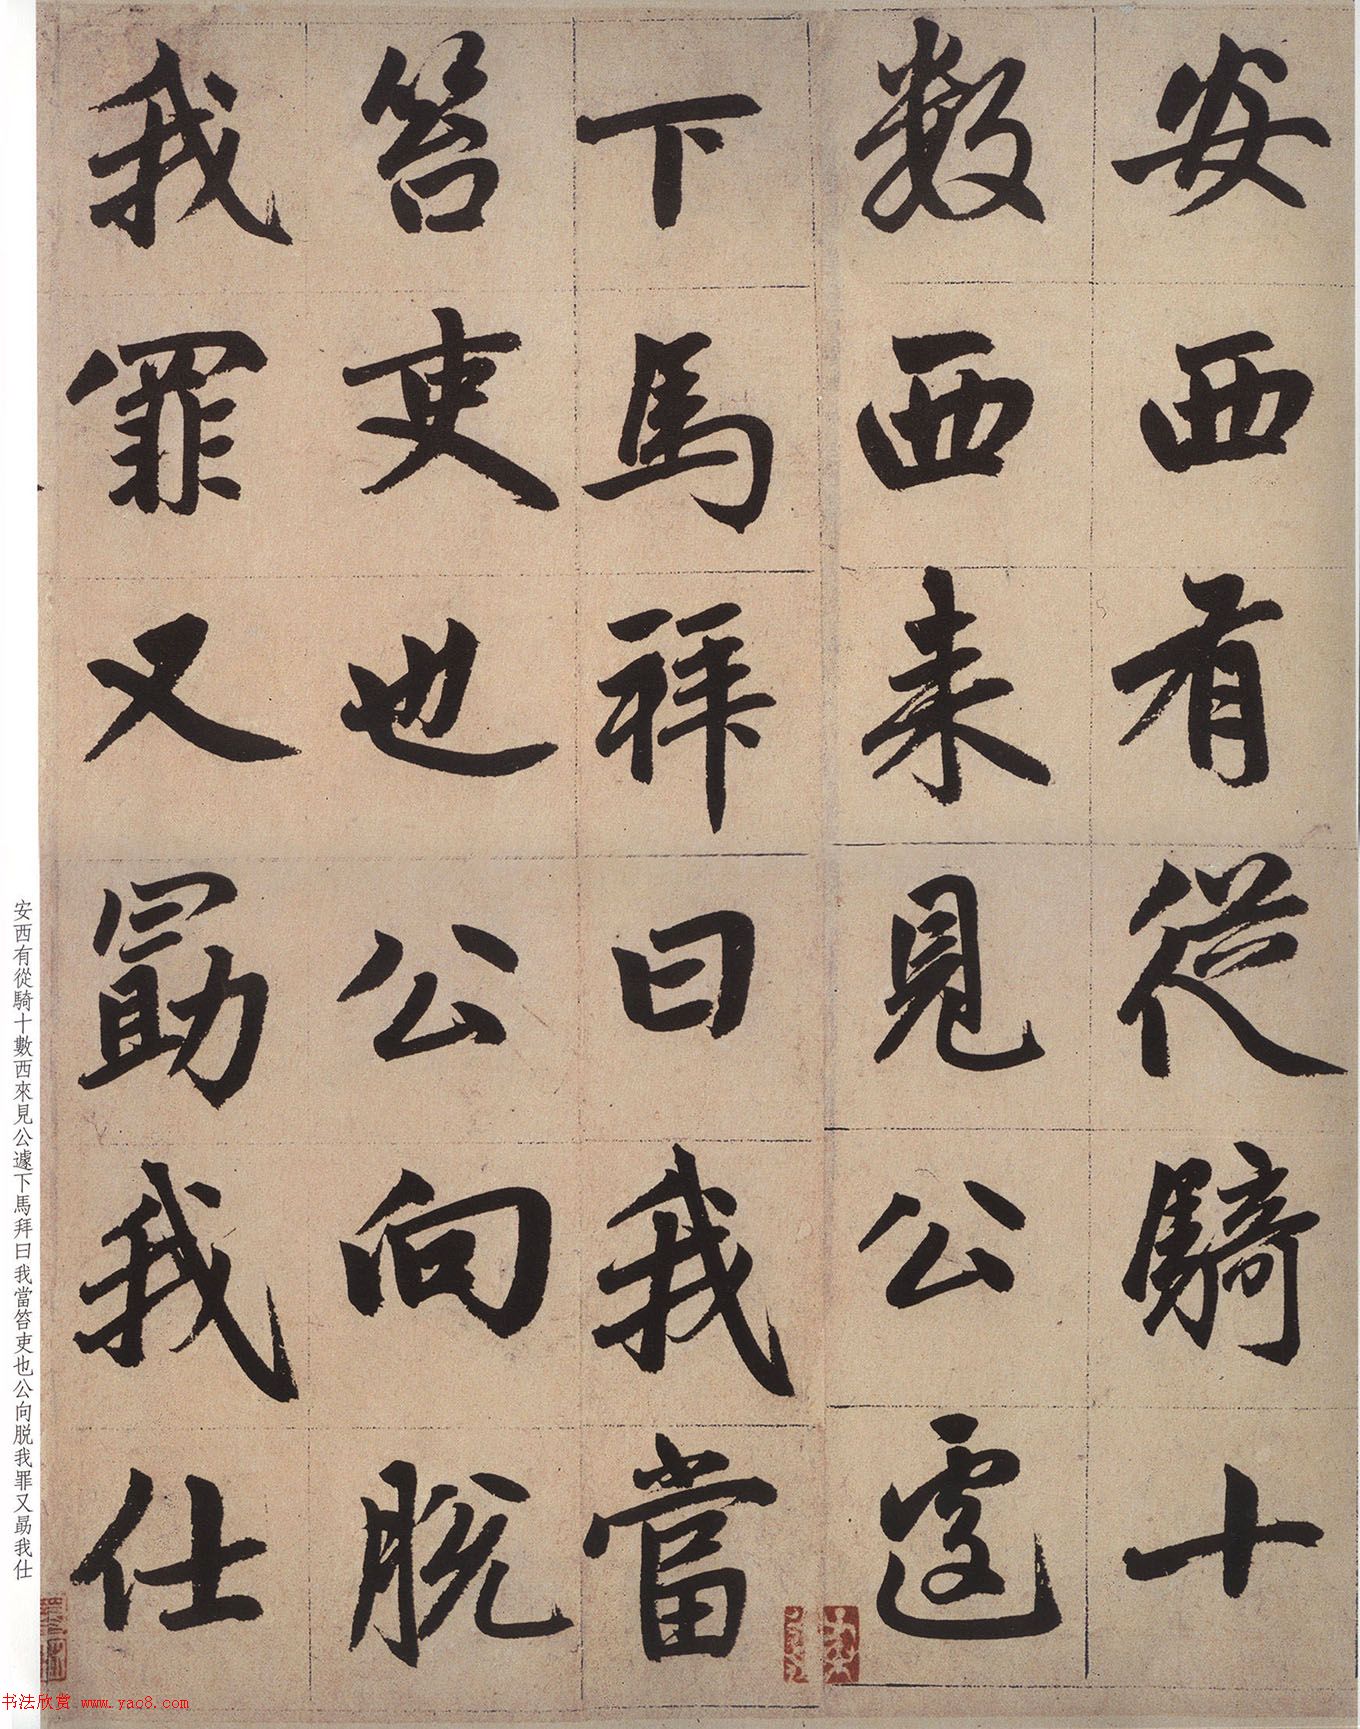 安西有從騎十
數西来見公遽
下馬拜曰我當
笞吏也公向脱
我罪又勗我仕
安西有從騎十數西來見公遽下馬拜曰我當笞吏也公向脱我罪又勗我仕
书法欣赏 www.yac8.com